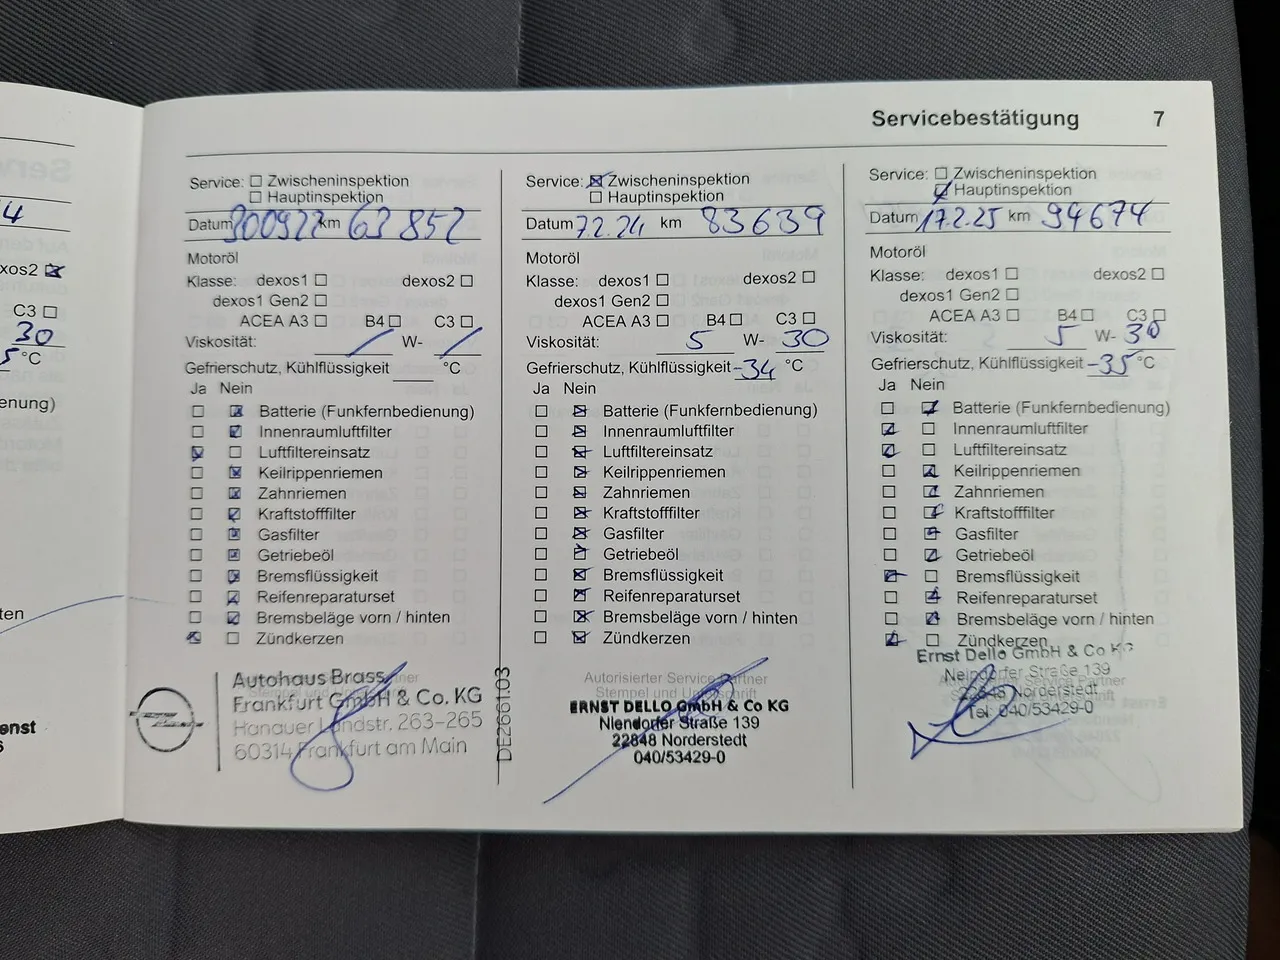 Servicebestätigung 7
4
xos2
C3
30
5 °C
enung)
ten
enst
Service: Zwischeninspektion
Hauptinspektion
Datum 300922 km 63852
Motoröl
Klasse: dexos1 dexos2
dexos1 Gen2
ACEA A3 B4 C3
Viskosität: / W- /
Gefrierschutz, Kühlflüssigkeit °C
Ja Nein
Batterie (Funkfernbedienung)
Innenraumluftfilter
Luftfiltereinsatz
Keilrippenriemen
Zahnriemen
Kraftstofffilter
Gasfilter
Getriebeöl
Bremsflüssigkeit
Reifenreparaturset
Bremsbeläge vorn / hinten
Zündkerzen
Autohaus Brass
Frankfurt GmbH & Co. KG
Hanauer Landstr. 263-265
60314 Frankfurt am Main
DE2661.03
Service: Zwischeninspektion
Hauptinspektion
Datum 7.2.24 km 83639
Motoröl
Klasse: dexos1 dexos2
dexos1 Gen2
ACEA A3 B4 C3
Viskosität: 5 W- 30
Gefrierschutz, Kühlflüssigkeit -34 °C
Ja Nein
Batterie (Funkfernbedienung)
Innenraumluftfilter
Luftfiltereinsatz
Keilrippenriemen
Zahnriemen
Kraftstofffilter
Gasfilter
Getriebeöl
Bremsflüssigkeit
Reifenreparaturset
Bremsbeläge vorn / hinten
Zündkerzen
Autorisierter Service Partner
Stempel und Unterschrift
ERNST DELLO GmbH & Co KG
Niendorfer Straße 139
22848 Norderstedt
040/53429-0
Service: Zwischeninspektion
Hauptinspektion
Datum 17.2.25 km 94674
Motoröl
Klasse: dexos1 dexos2
dexos1 Gen2
ACEA A3 B4 C3
Viskosität: 5 W- 30
Gefrierschutz, Kühlflüssigkeit -35 °C
Ja Nein
Batterie (Funkfernbedienung)
Innenraumluftfilter
Luftfiltereinsatz
Keilrippenriemen
Zahnriemen
Kraftstofffilter
Gasfilter
Getriebeöl
Bremsflüssigkeit
Reifenreparaturset
Bremsbeläge vorn / hinten
Zündkerzen
Ernst Dello GmbH & Co KG
Neindorfer Straße 139
22848 Norderstedt
Tel: 040/53429-0